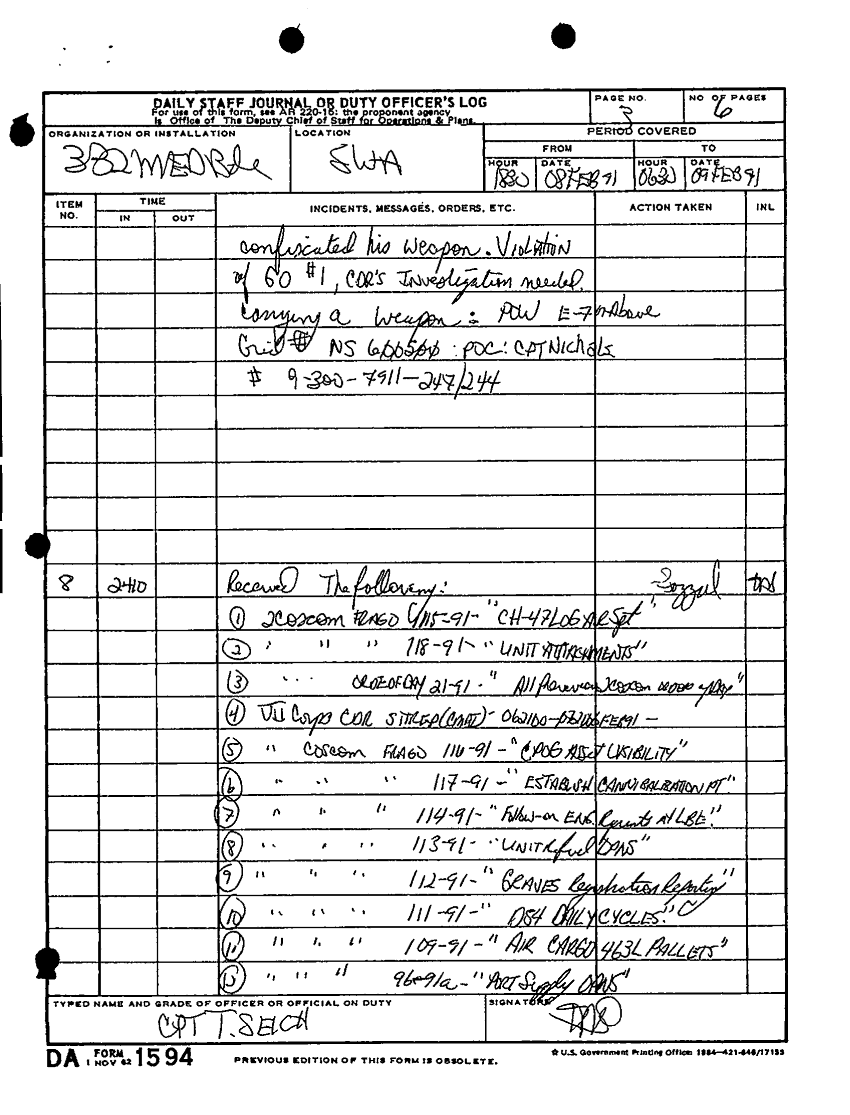 DAILY STAFF JOURNAL OR DUTY OFFICER'S LOG
For use of this form, see AR 220-15; the proponent agency
is Office of The Deputy Chief of Staff for Operations & Plans.
PAGE NO.
3
NO OF PAGES
6
ORGANIZATION OR INSTALLATION
332 MED Bde
LOCATION
SWA
PERIOD COVERED
FROM
TO
HOUR
1830
DATE
08 FEB 91
HOUR
0630
DATE
09 FEB 91
ITEM NO.
TIME
IN
OUT
INCIDENTS, MESSAGES, ORDERS, ETC.
ACTION TAKEN
INL
confiscated his weapon. Violation
of GO #1, CDR's Investigation needed.
Carrying a weapon: POW E-7 Above
Grid # NS : POC: CPT Nichols
9-300-7911-247/244
8 2410 Received The following:
① 2COSCOM FRAGO 115-91- "CH-47 LOG AR Spt"
② " " " 118-91- "UNIT ATTACHMENTS"
③ 21-91- " All Previous COSCOM
④ VII Corps CDR SITREP - 062100-
⑤ " COSCOM FRAGO 116-91- "CPOG ASSET VISIBILITY"
⑥ " " " 117-91- "ESTABLISH CANNIBALIZATION PT"
⑦ " " " 114-91- "Follow-on ENG. LBE."
⑧ " " " 113-91- "UNIT Refuel OPNS"
⑨ " " " 112-91- "GRAVES Registration Reporting"
⑩ " " " 111-91- "DS4 DAILY CYCLES."
⑪ " " " 109-91- "AIR CARGO 463L PALLETS"
" " " 96-91a- "ART Supply OPNS"
TYPED NAME AND GRADE OF OFFICER OR OFFICIAL ON DUTY
CPT T. SEICH
SIGNATURE
DA FORM 1 NOV 62 1594
PREVIOUS EDITION OF THIS FORM IS OBSOLETE.
☆ U.S. Government Printing Office: 1984-421-646/17133